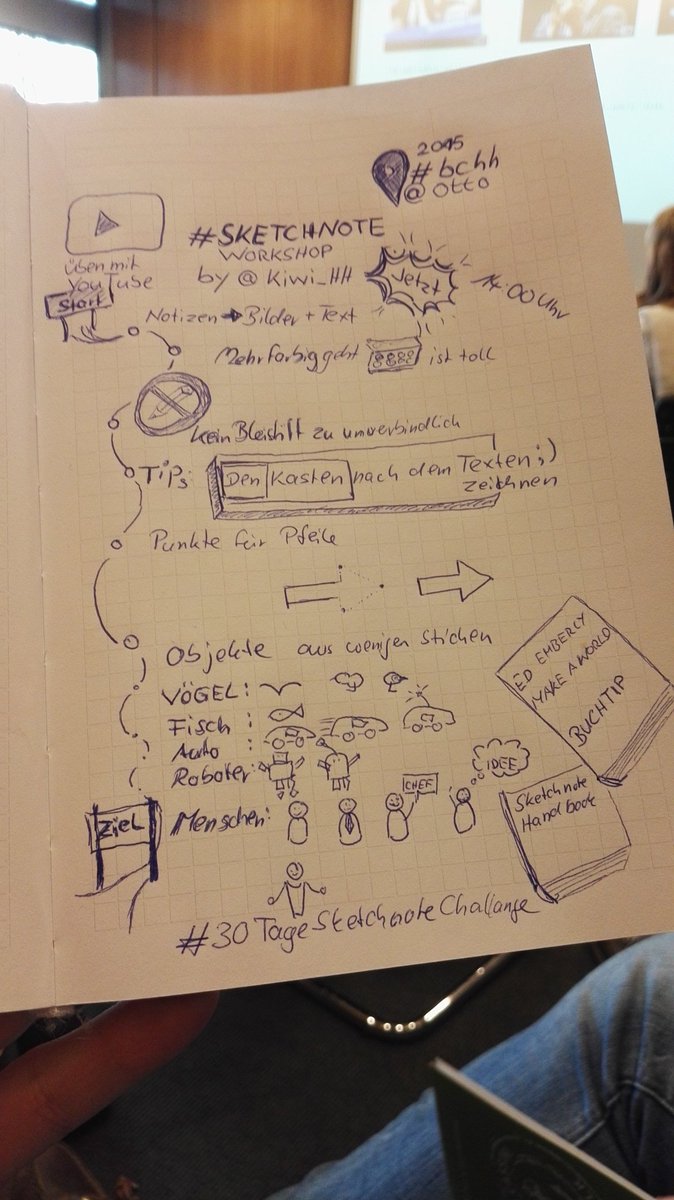 2015
#bchh
@ Otto
#SKETCHNOTE
WORKSHOP
by @ Kiwi_HH
Jetzt
14:00 Uhr
Üben mit
YouTube
Start
Notizen → Bilder + Text
Mehrfarbig geht ist toll
kein Bleistift zu unverbindlich
TIPs:
Den Kasten nach dem Texten ;)
zeichnen
Punkte für Pfeile
Objekte aus wenigen Strichen
VÖGEL:
Fisch :
Auto :
Roboter:
Menschen:
CHEF
IDEE
ED EMBERLY
MAKE A WORLD
BUCHTIP
Sketchnote
Handbook
ZIEL
#30TageSketchnoteChallange